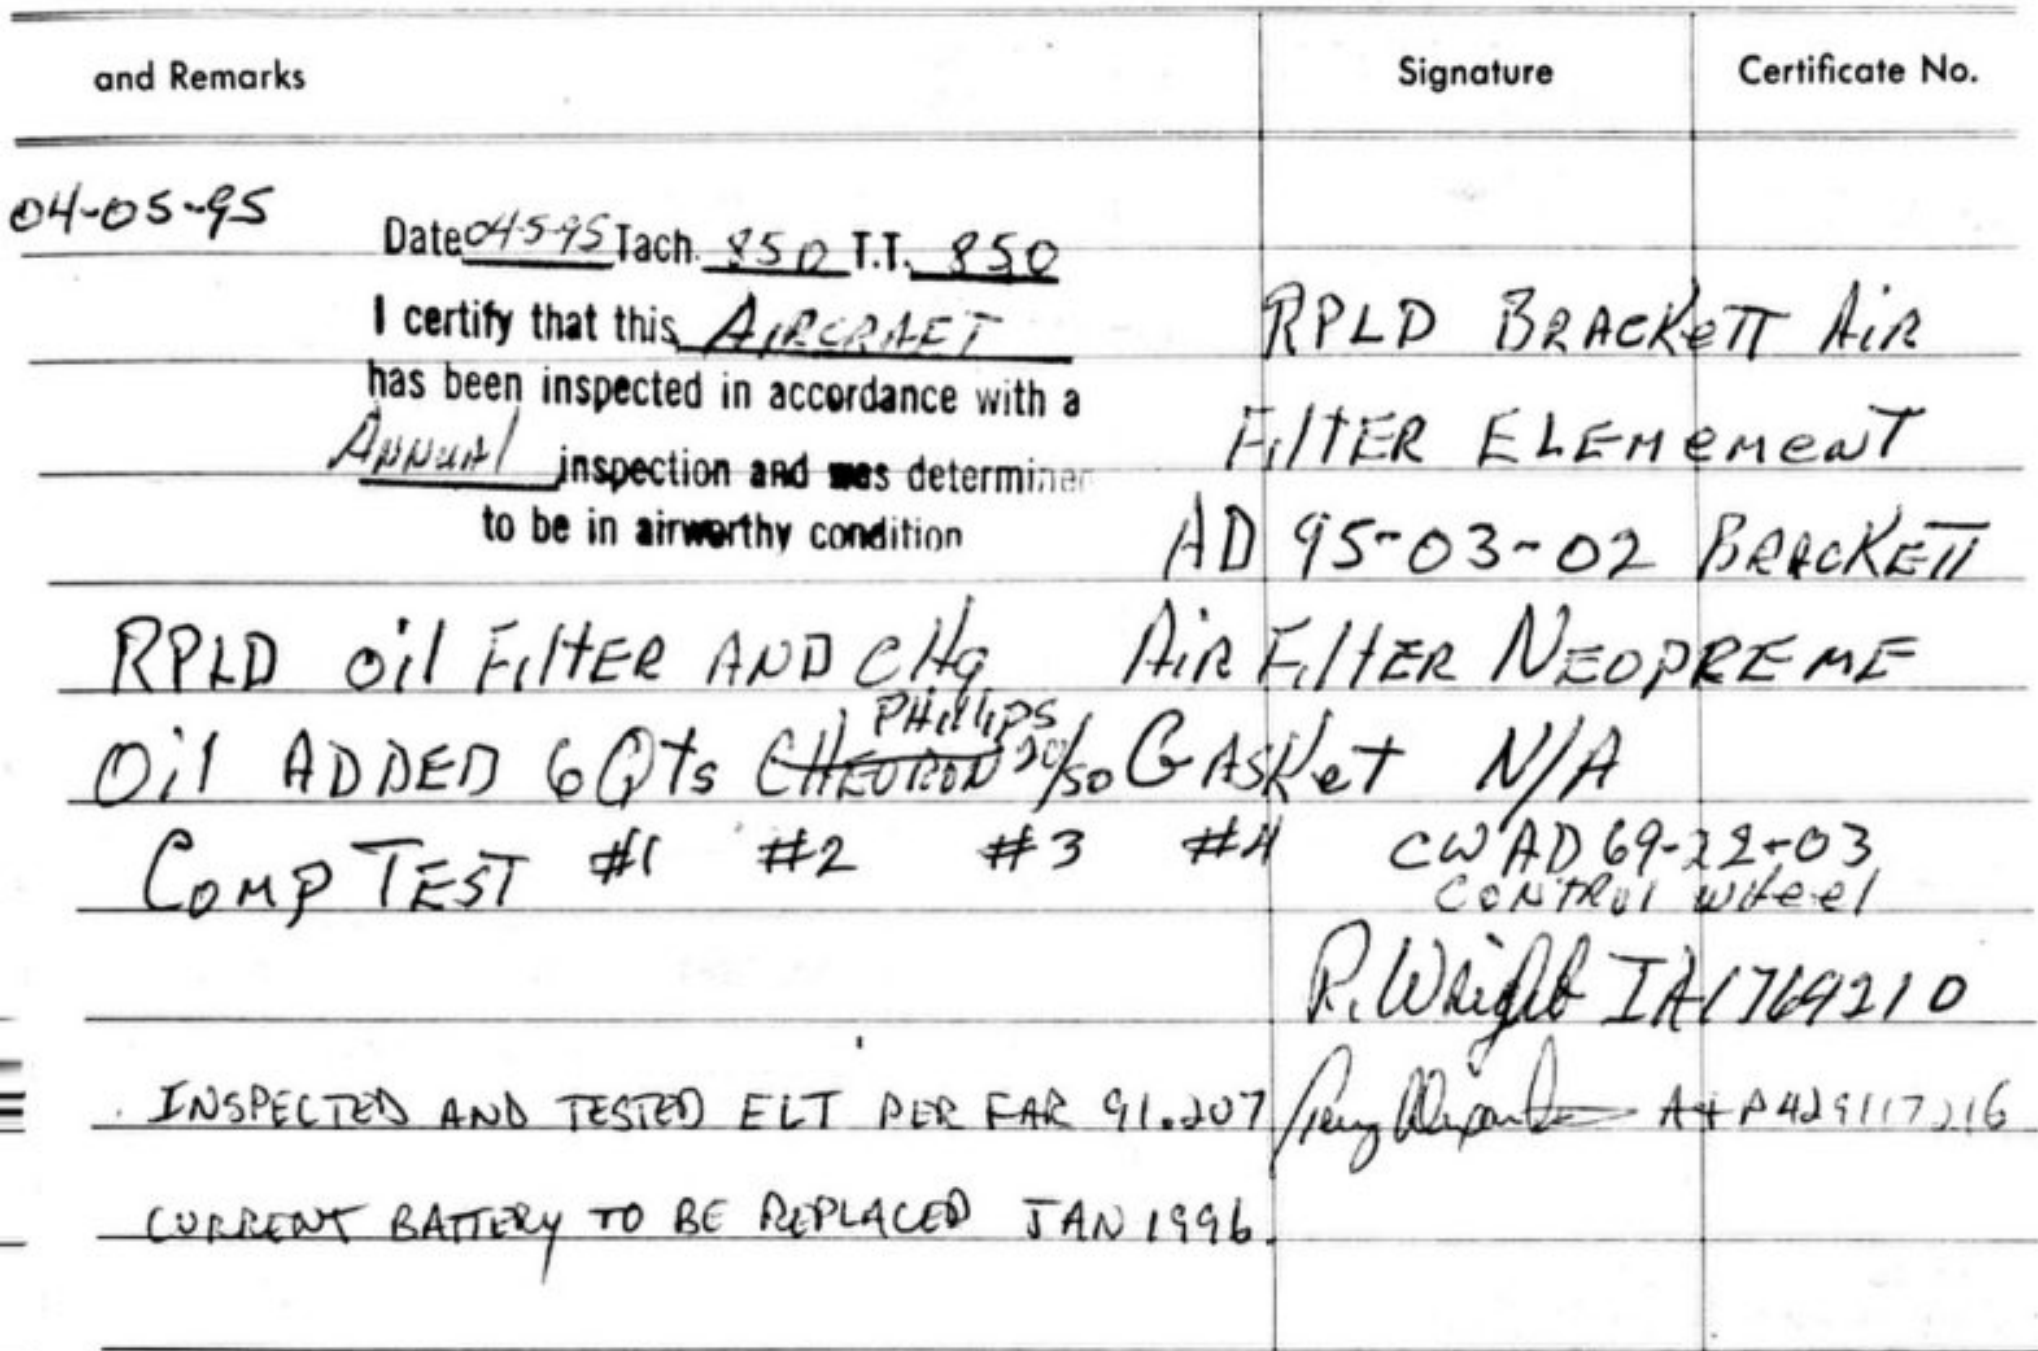 and Remarks Signature Certificate No.
04-05-95
Date 04-5-95 Tach. 850 T.T. 850
I certify that this AIRCRAFT
has been inspected in accordance with a
Annual inspection and was determined
to be in airworthy condition
RPLD BRACKeTT AiR
FilTER ELEMEMENT
AD 95-03-02 BRACKETT
AiR FilTER NEOPREME
GASKet N/A
RPLD oil FilTER AND CHg
Oil ADDED 6 Qts CHEVRON PHillips 20/50
COMP TEST #1 #2 #3 #4
CW AD 69-22-03
CONTROl WHeel
R. Wright IA 1769210
INSPECTED AND TESTED ELT PER FAR 91.207
A+P 429117216
CURRENT BATTERY TO BE REPLACED JAN 1996.